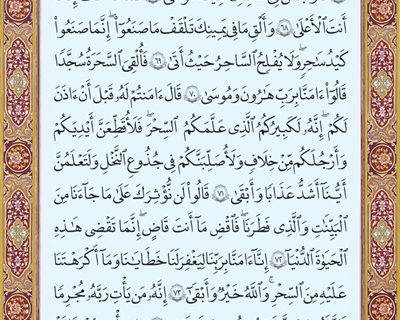 أَنتَ ٱلْأَعْلَىٰ ۝٦٨ وَأَلْقِ مَا فِى يَمِينِكَ تَلْقَفْ مَا صَنَعُوٓا۟ ۖ إِنَّمَا صَنَعُوا۟
كَيْدُ سَٰحِرٍ ۖ وَلَا يُفْلِحُ ٱلسَّاحِرُ حَيْثُ أَتَىٰ ۝٦٩ فَأُلْقِىَ ٱلسَّحَرَةُ سُجَّدًا
قَالُوٓا۟ ءَامَنَّا بِرَبِّ هَٰرُونَ وَمُوسَىٰ ۝٧٠ قَالَ ءَامَنتُمْ لَهُۥ قَبْلَ أَنْ ءَاذَنَ
لَكُمْ ۖ إِنَّهُۥ لَكَبِيرُكُمُ ٱلَّذِى عَلَّمَكُمُ ٱلسِّحْرَ ۖ فَلَأُقَطِّعَنَّ أَيْدِيَكُمْ
وَأَرْجُلَكُم مِّنْ خِلَٰفٍ وَلَأُصَلِّبَنَّكُمْ فِى جُذُوعِ ٱلنَّخْلِ وَلَتَعْلَمُنَّ
أَيُّنَآ أَشَدُّ عَذَابًا وَأَبْقَىٰ ۝٧١ قَالُوا۟ لَن نُّؤْثِرَكَ عَلَىٰ مَا جَآءَنَا مِنَ
ٱلْبَيِّنَٰتِ وَٱلَّذِى فَطَرَنَا ۖ فَٱقْضِ مَآ أَنتَ قَاضٍ ۖ إِنَّمَا تَقْضِى هَٰذِهِ
ٱلْحَيَوٰةَ ٱلدُّنْيَآ ۝٧٢ إِنَّآ ءَامَنَّا بِرَبِّنَا لِيَغْفِرَ لَنَا خَطَٰيَٰنَا وَمَآ أَكْرَهْتَنَا
عَلَيْهِ مِنَ ٱلسِّحْرِ ۗ وَٱللَّهُ خَيْرٌ وَأَبْقَىٰٓ ۝٧٣ إِنَّهُۥ مَن يَأْتِ رَبَّهُۥ مُجْرِمًا